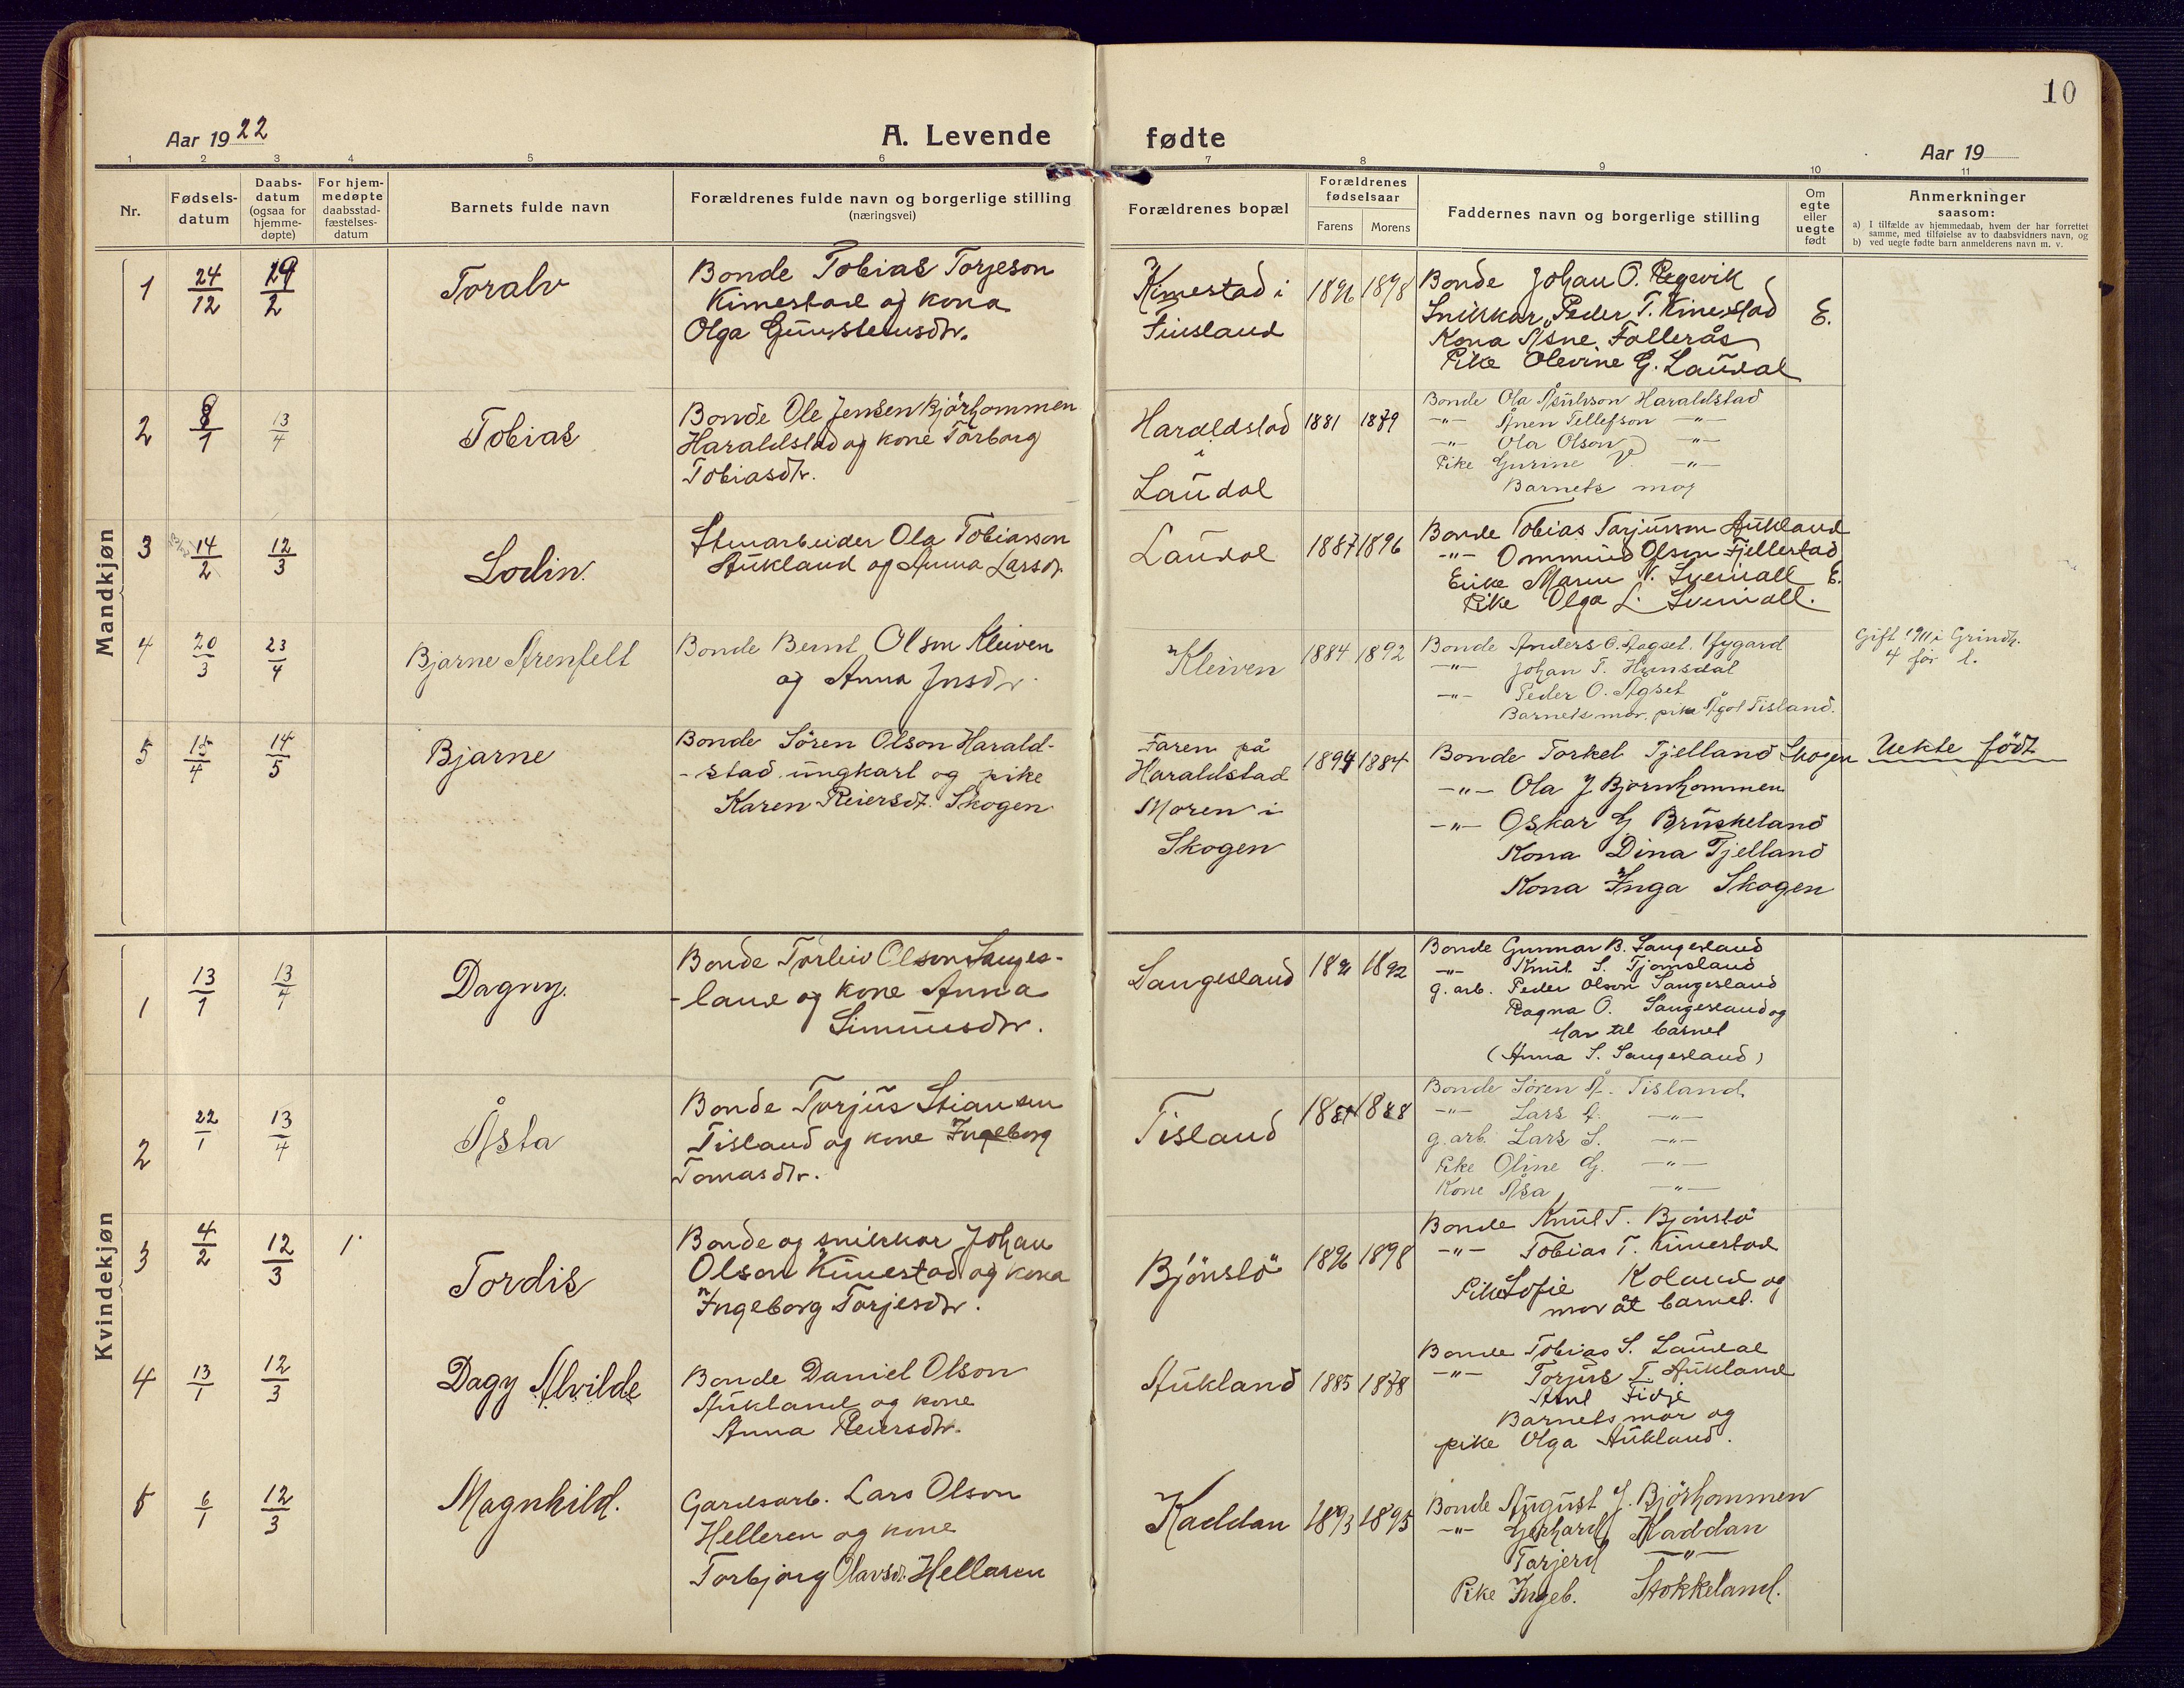 10
Aar 1922
A. Levende fødte
Aar 19
1 2 3 4 5 6 7 8 9 10 11
Nr.
Fødsels-
datum
Daabs-
datum
(ogsaa for
hjemme-
døpte)
For hjem-
medøpte
daabsstad-
fæstelses-
datum
Barnets fulde navn
Forældrenes fulde navn og borgerlige stilling
(næringsvei)
Forældrenes bopæl
Forældrenes
fødselsaar
Farens Morens
Faddernes navn og borgerlige stilling
Om
egte
eller
uegte
født
Anmerkninger
saasom:
a) I tilfælde av hjemmedaab, hvem der har forrettet
samme, med tilføielse av to daabsvidners navn, og
b) ved uegte fødte barn anmelderens navn m. v.
Mandkjøn
1 24/12 19/2 Toralv
Bonde Tobias Torjeson
Kimestad og kona
Olga Gunsteinsdtr.
Kimestad i
Finsland
1896 1898
Bonde Johan O. Røgevik
Snikkar Peder T. Kimestad
Kona Åsne Follerås
Pike Olevine G. Laudal
E.
2 8/1 13/4 Tobias
Bonde Ole Jensen Bjørhommen
Haraldstad og kone Torborg
Tobiasdtr.
Haraldstad
i
Laudal
1881 1879
Bonde Ola Åsulvson Haraldstad
-"- Ånen Tellefson -"-
-"- Ola Olson -"-
Pike Gurine -"-
Barnets mor
3 14/2 12/3 Lodin.
Stenarbeider Ola Tobiasson
Aukland og Anna Larsdr.
Laudal
1887 1896
Bonde Tobias Tarjusson Aukland
-"- Ommund Olson Fjellestad
Enke Maren N. Sveinall E.
Pike Olga L. Sveinall.
4 20/3 23/4 Bjarne Arenfelt
Bonde Bernt Olson Kleiven
og Anna Jnsdr.
Kleiven
1884 1892
Bonde Anders O. Aagset, Nygard
-"- Johan T. Hunsdal
-"- Peder O. Agset
Barnets mor, pike Ågot Tisland.
Gift 1911 i Grindh.
4 før l.
5 15/4 14/5 Bjarne
Bonde Sören Olson Harald-
-stad ungkarl og pike
Karen Reiersdt. Skogen
Faren på
Haraldstad
Moren i
Skogen
1894 1884
Bonde Torkel Tjelland Skogen
-"- Ola J Bjornhommen
-"- Oskar G Bruskeland
Kona Dina Tjelland
Kona Inga Skogen
Uekte födt
Kvindekjøn
1 13/1 13/4 Dagny.
Bonde Torleiv Olson Sanges-
-land og kone Anna
Simunsdtr.
Sangesland
1891 1892
Bonde Gunnar B. Sangesland
-"- Knut S. Tjomsland
g. arb. Peder Olson Sangesland
Ragna O. Sangesland og
Mor til barnet
(Anna S. Sangesland)
2 22/1 13/4 Åsta
Bonde Torjus Stiansen
Tisland og kone Ingeborg
Tomasdtr.
Tisland
1888
Bonde Sören A. Tisland
-"- Lars -"-
g. arb. Lars S. -"-
Pike Oline G. -"-
Kone Åsa -"-
3 4/2 12/3 1 Tordis
Bonde og snikkar Johan
Olson Kimestad og kona
Ingeborg Torjesdtr.
Bjönslö
1896 1898
Bonde Knut T. Bjönslö
-"- Tobias T. Kimestad
Pike Sofie Koland og
mor åt barnet.
4 13/1 12/3 Dagy Alvilde
Bonde Daniel Olson
Aukland og kone
Anna Reiersdtr.
Aukland
1885 1878
Bonde Tobias S. Laudal
-"- Torjus T. Aukland
Fidje
Barnets mor og
pike Olga Aukland.
5 6/1 12/3 Magnhild.
Gardsarb. Lars Olson
Helleren og kone
Torbjorg Olavsd. Helleren
Kaddan
1893 1895
Bonde August J. Bjørhommen
-"- Gerhard Kaddan
Torjerd -"-
Pike Ingeb. Stokkeland.